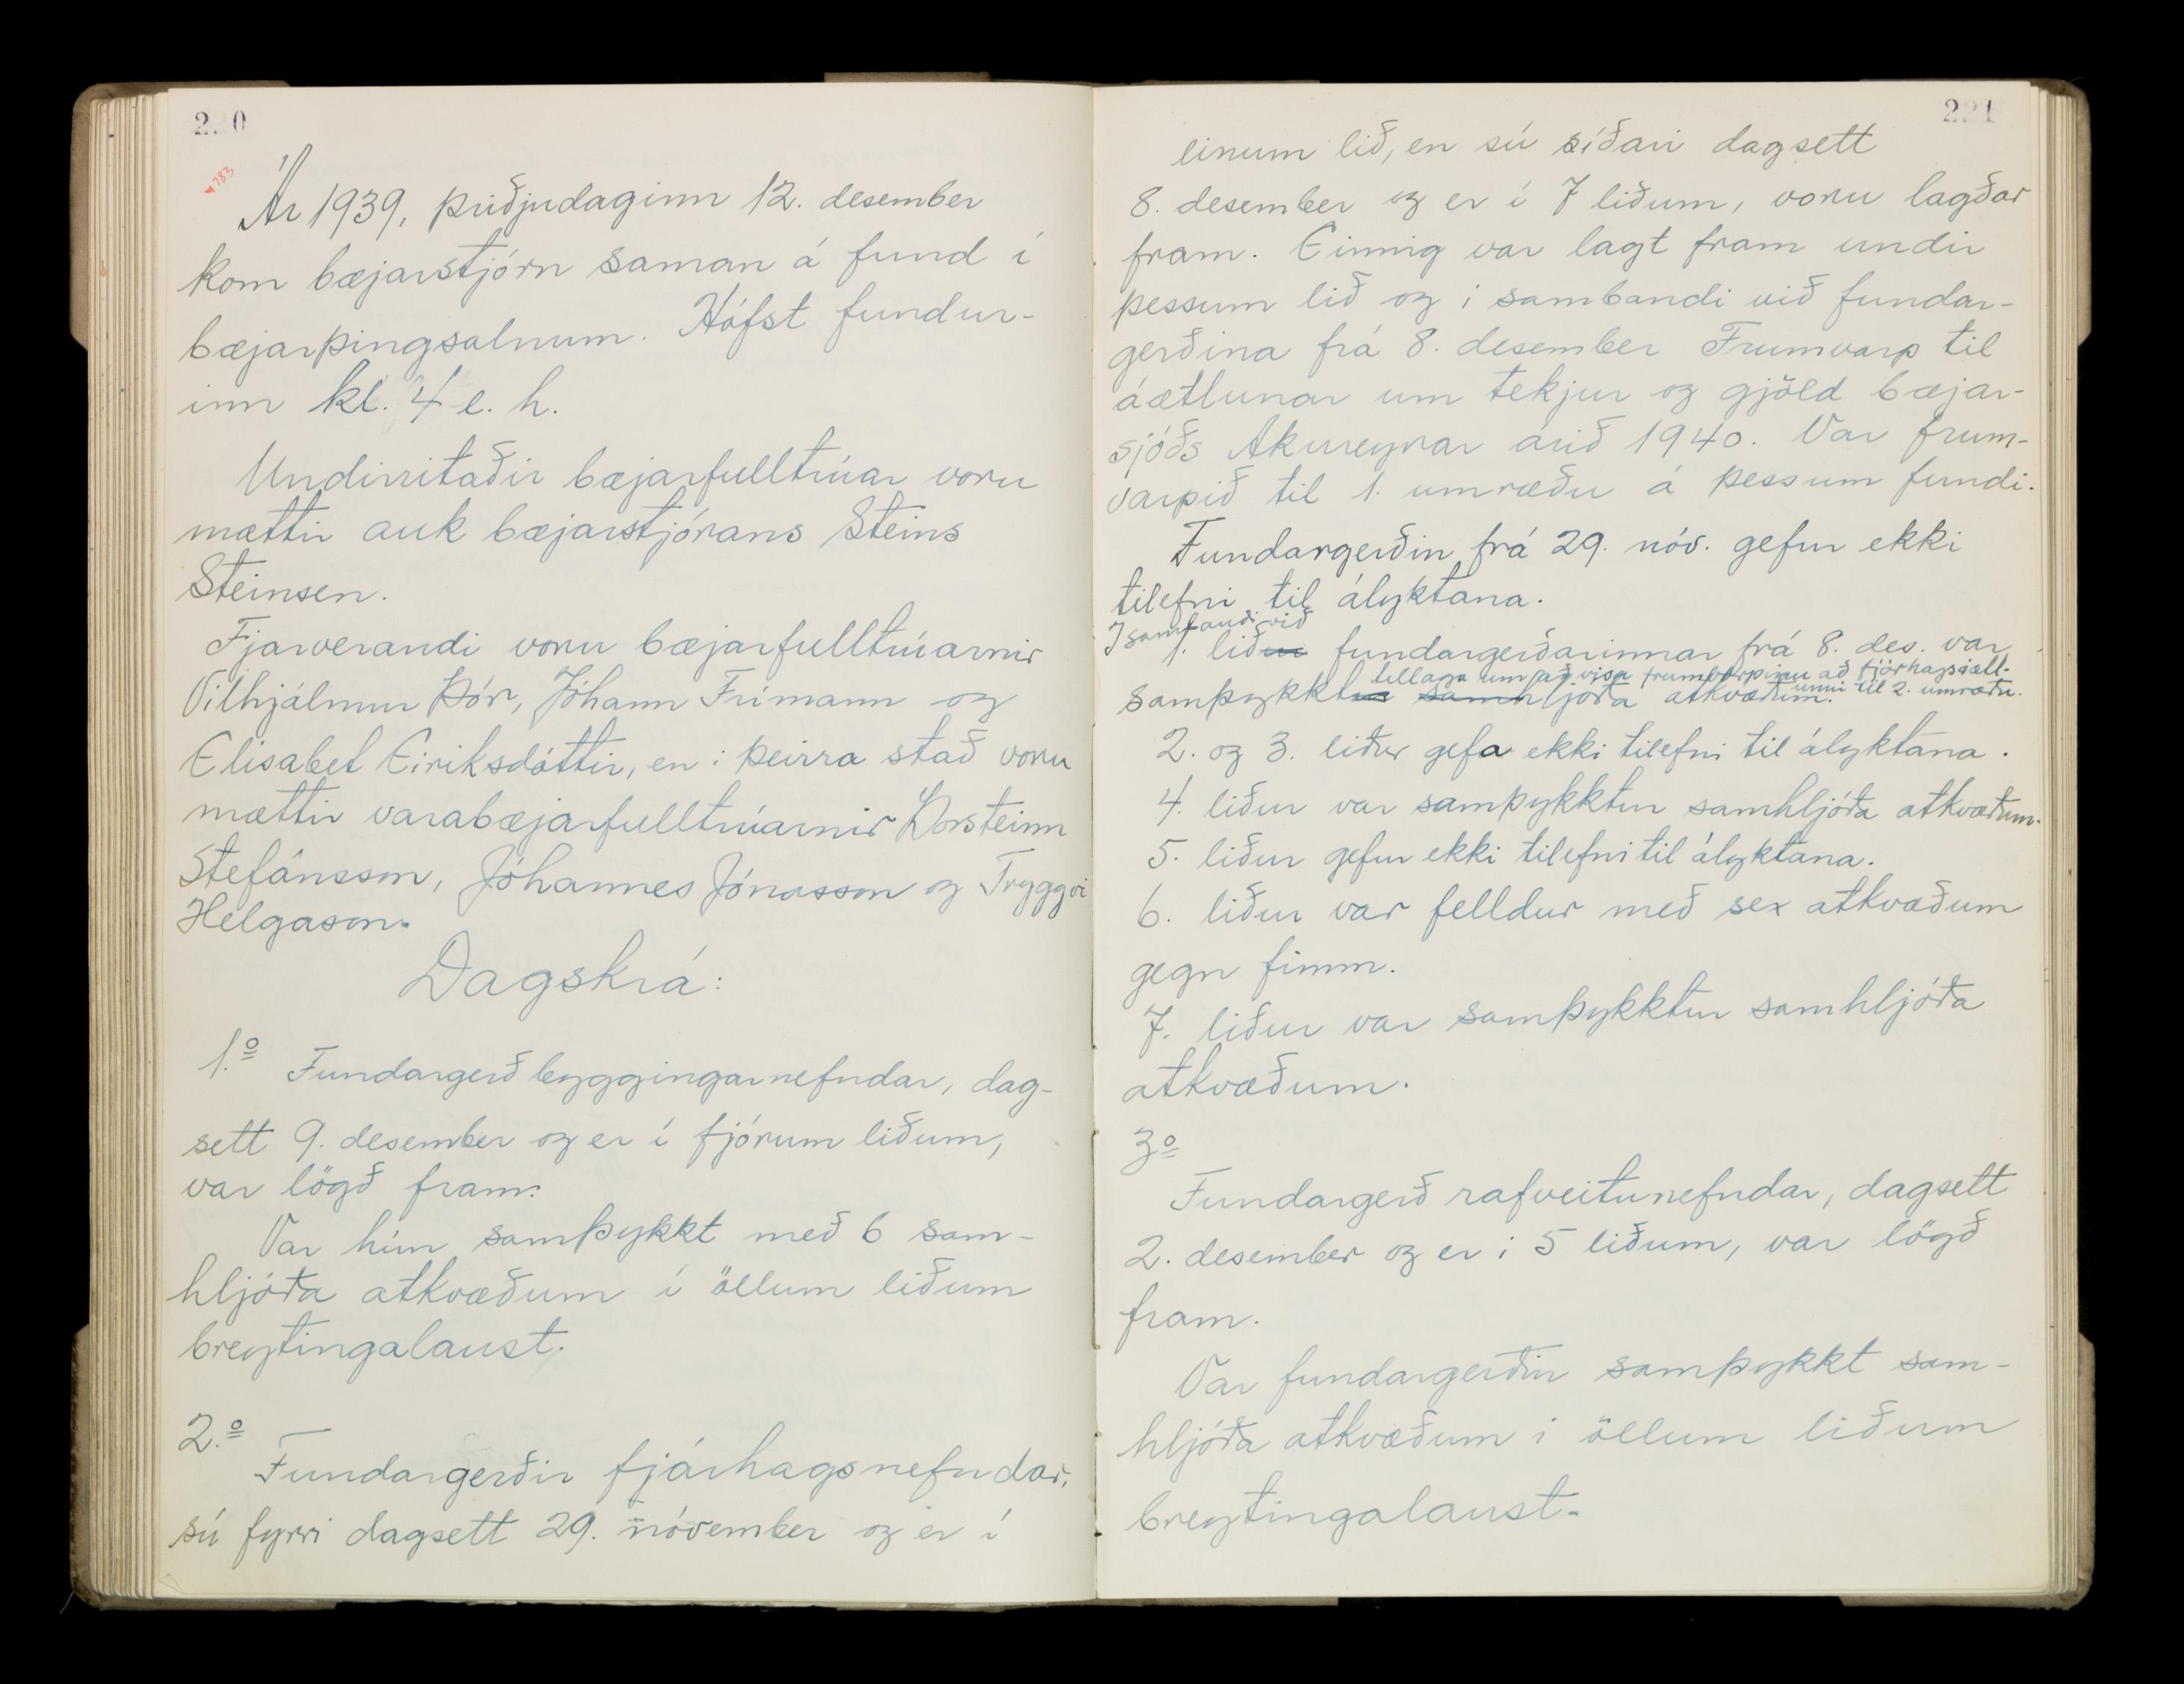 220
783
Ár 1939, þriðjudaginn 12. desember
kom bæjarstjórn saman á fund í
bæjarþingsalnum. Hófst fundur-
inn kl. 4 e. h.
Undirritaðir bæjarfulltrúar voru
mættir auk bæjarstjórans Steins
Steinsen.
Fjarverandi voru bæjarfulltrúarnir
Vilhjálmur Þór, Jóhann Frímann og
Elisabet Eiriksdóttir, en i þeirra stað voru
mættir varabæjarfulltrúarnir Þorsteinn
Stefánsson, Jóhannes Jónasson og Tryggvi
Helgason.
Dagskrá:
1.º Fundargerð byggingarnefndar, dag-
sett 9. desember og er í fjórum liðum,
var lögð fram.
Var hún samþykkt með 6 sam-
hljóða atkvæðum í öllum liðum
breytingalaust.
2.º
Fundargerðir fjárhagsnefndar,
sú fyrri dagsett 29. nóvember og er í
221
einum lið, en sú síðari dagsett
8. desember og er í 7 liðum, voru lagðar
fram. Einnig var lagt fram undir
þessum lið og i sambandi við fundar-
gerðina frá 8. desember Frumvarp til
áætlunar um tekjur og gjöld bæjar-
sjóðs Akureyrar árið 1940. Var frum-
varpið til 1. umræðu á þessum fundi.
Fundargerðin frá 29. nóv. gefur ekki
tilefni til ályktana.
I sambandi við
1. liður fundargerðarinnar frá 8. des. var
tillaga um að vísa frumvarpinu að fjárhagsáætl-
unni til 2. umræðu.
samþykkt samhljóða atkvæðum.
2. og 3. liður gefa ekki tilefni til ályktana.
4. liður var samþykktur samhljóða atkvæðum.
5. liður gefur ekki tilefni til ályktana.
6. liður var felldur með sex atkvæðum
gegn fimm.
7. liður var samþykktur samhljóða
atkvæðum.
3º
Fundargerð rafveitunefndar, dagsett
2. desember og er i 5 liðum, var lögð
fram.
Var fundargerðin samþykkt sam-
hljóða atkvæðum i öllum liðum
breytingalaust.